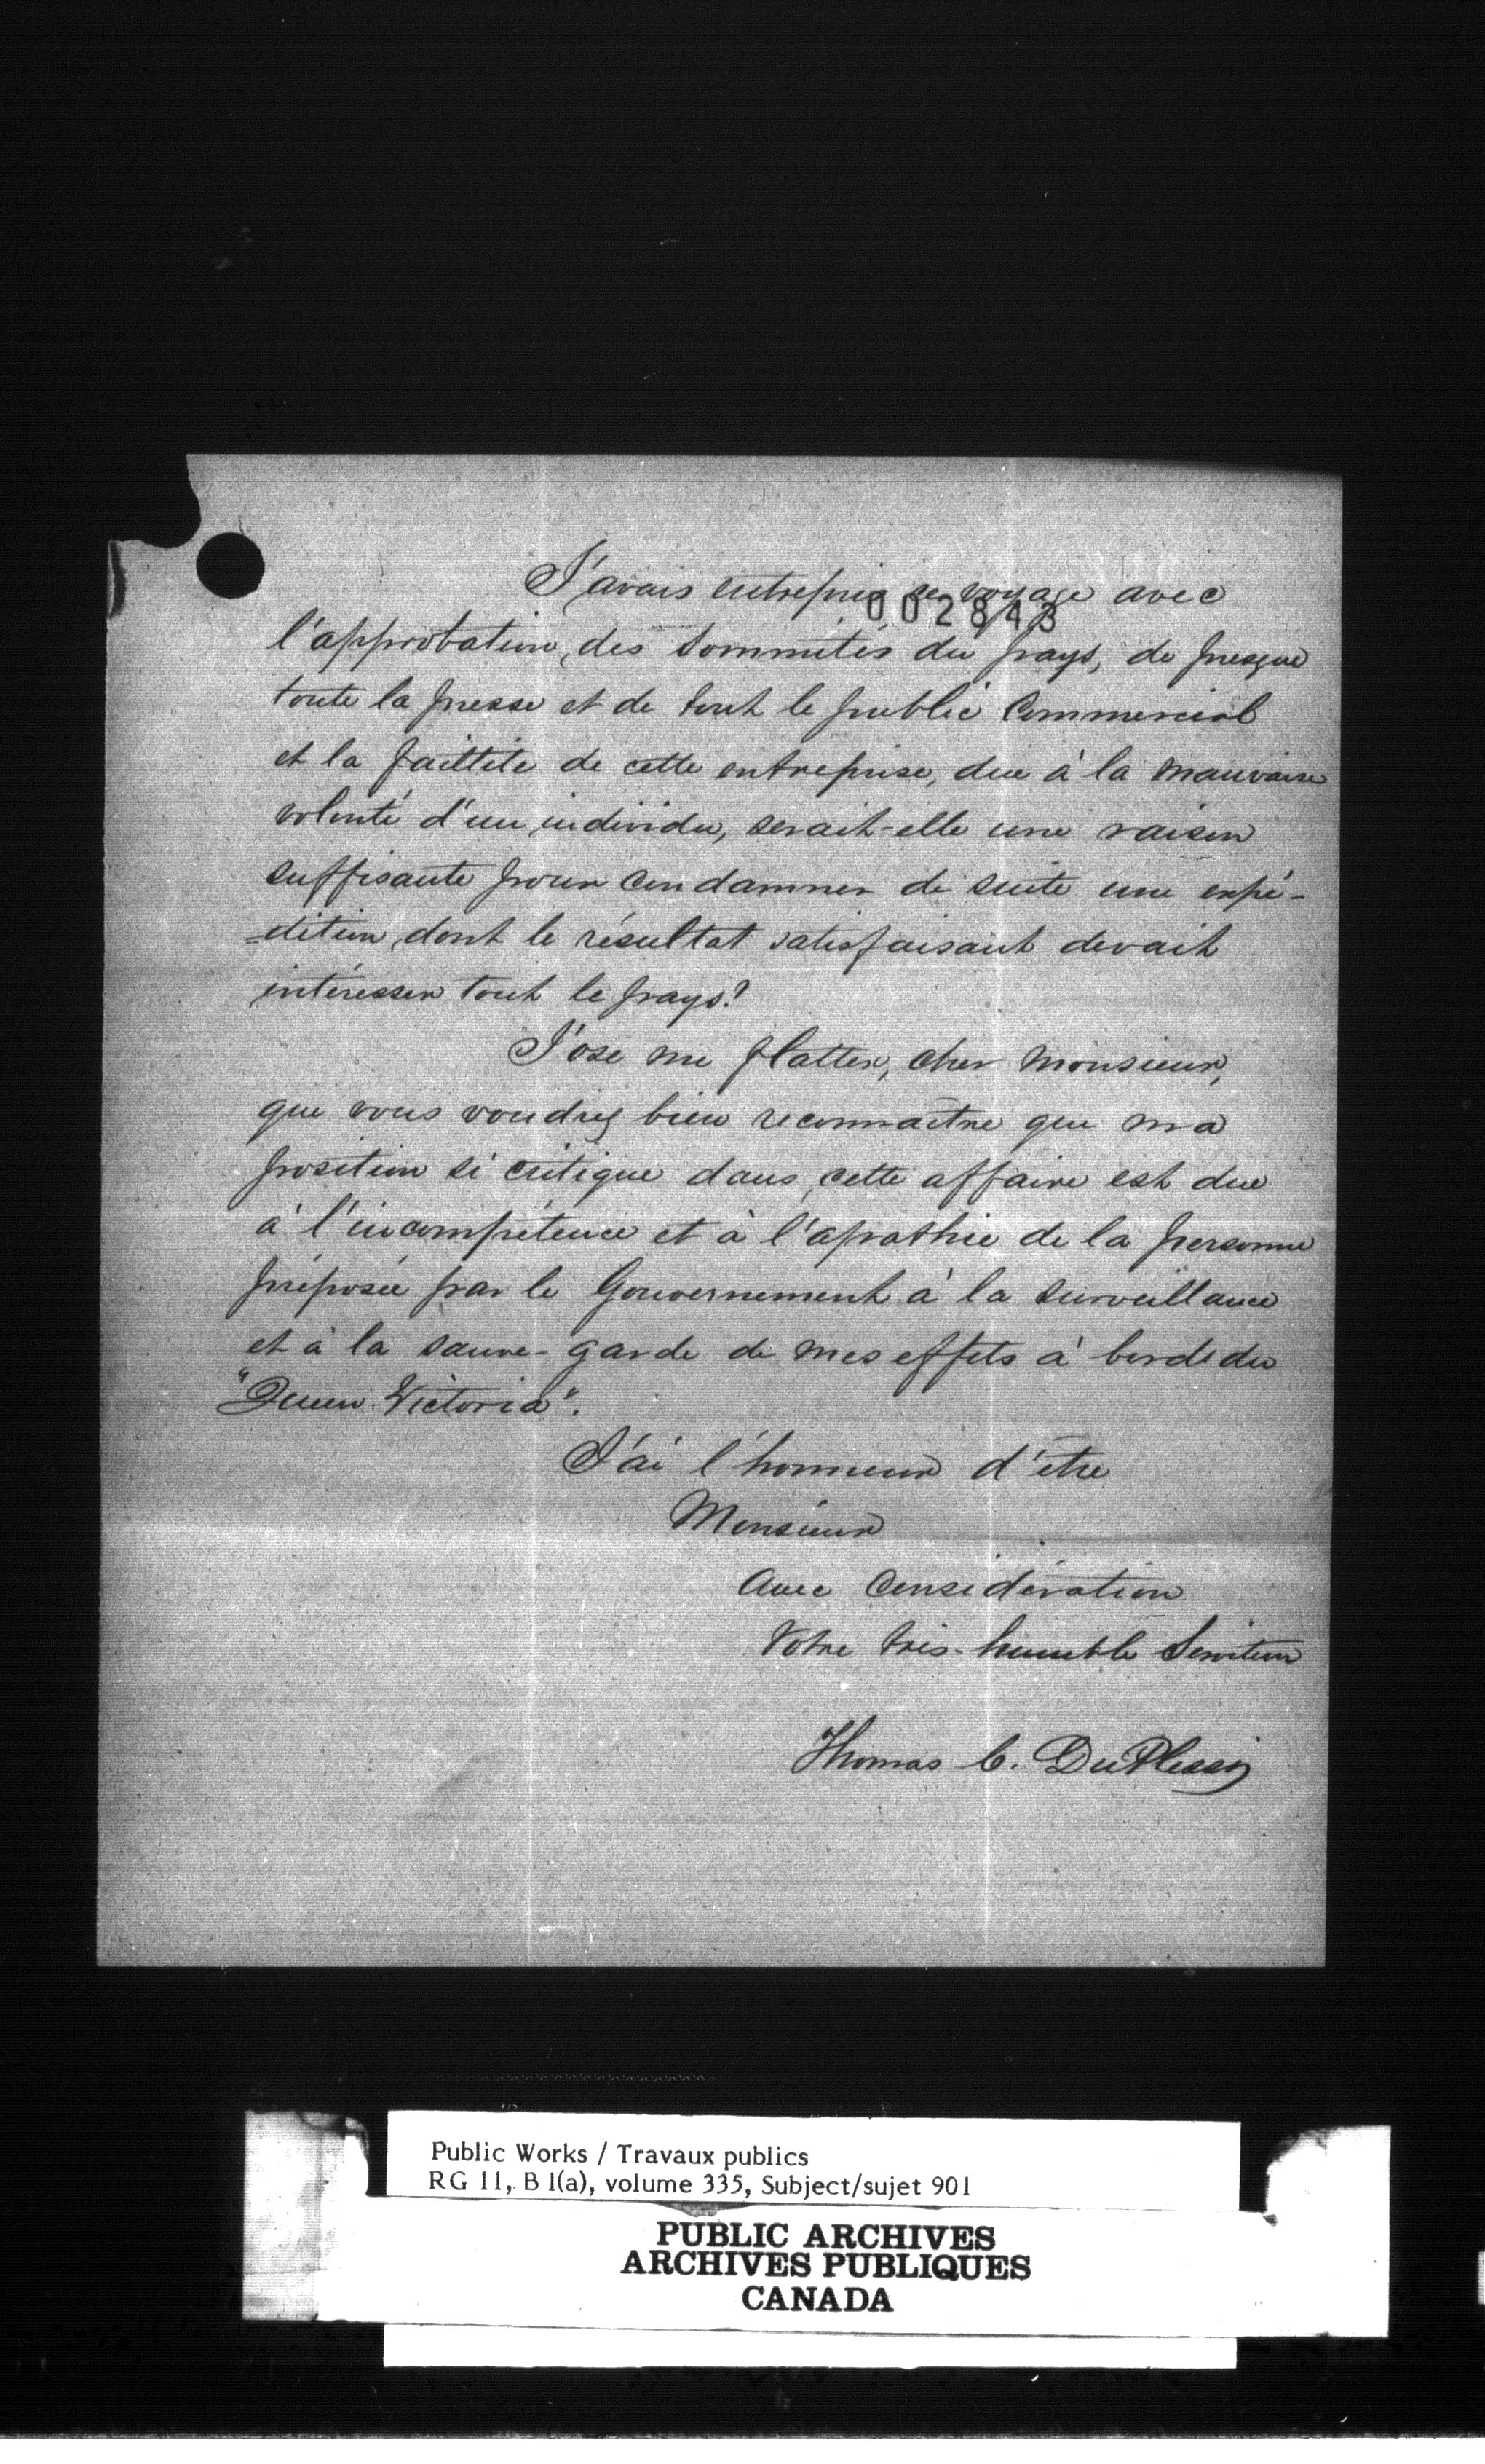 J'avais entrepris ce voyage avec
002843
l'approbation, des sommités du pays, de presque
toute la presse et de tout le public Commercial
et la faillite de cette entreprise, due à la mauvaise
volonté d'un individu, serait-elle une raison
suffisante pour condamner de suite une expé-
=dition, dont le résultat satisfaisant devait
intéresser tout le pays?
J'ose me flatter, cher Monsieur,
que vous voudrez bien reconnaître que ma
position si critique dans cette affaire est due
à l'incompétence et à l'apathie de la personne
préposée par le Gouvernement à la surveillance
et à la sauve-garde de mes effets à bord du
"Queen Victoria".
J'ai l'honneur d'être
Monsieur
Avec Considération
Votre très-humble Serviteur
Thomas C. DuPlessis
Public Works / Travaux publics
RG 11, B 1(a), volume 335, Subject/sujet 901
PUBLIC ARCHIVES
ARCHIVES PUBLIQUES
CANADA